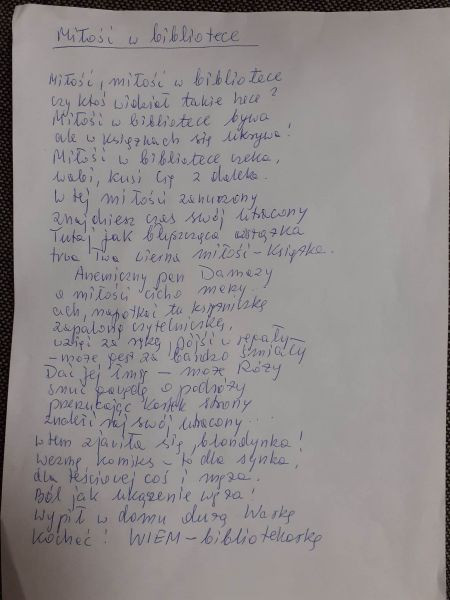 Miłość w bibliotece
Miłość, miłość w bibliotece
czy ktoś widział takie hece?
Miłość w bibliotece bywa
ale w książkach się ukrywa!
Miłość w bibliotece czeka,
wabi, kusi Cię z daleka.
W tej miłości zanurzony
znajdziesz czas swój utracony
Tutaj jak błyszcząca wstążka
trwa Twa wierna miłość - książka.
Anemiczny pan Damazy
o miłości cicho marzy.
ach, napotkać tu
zapaloną czytelniczkę,
wziąć za rękę, pójść w regały -
- może gest za bardzo śmiały
Dać jej imię - może Róży
snuć gawędę o podróży
przerzucając kartek strony
znaleźć raj swój utracony...
wtem zjawiła się, blondynka!
Wezmę komiks - to dla synka,
dla teściowej coś i męża.
Ból jak ukąszenie węża!
Wypił w domu dużą Warkę
Kochać! WIEM - bibliotekarkę